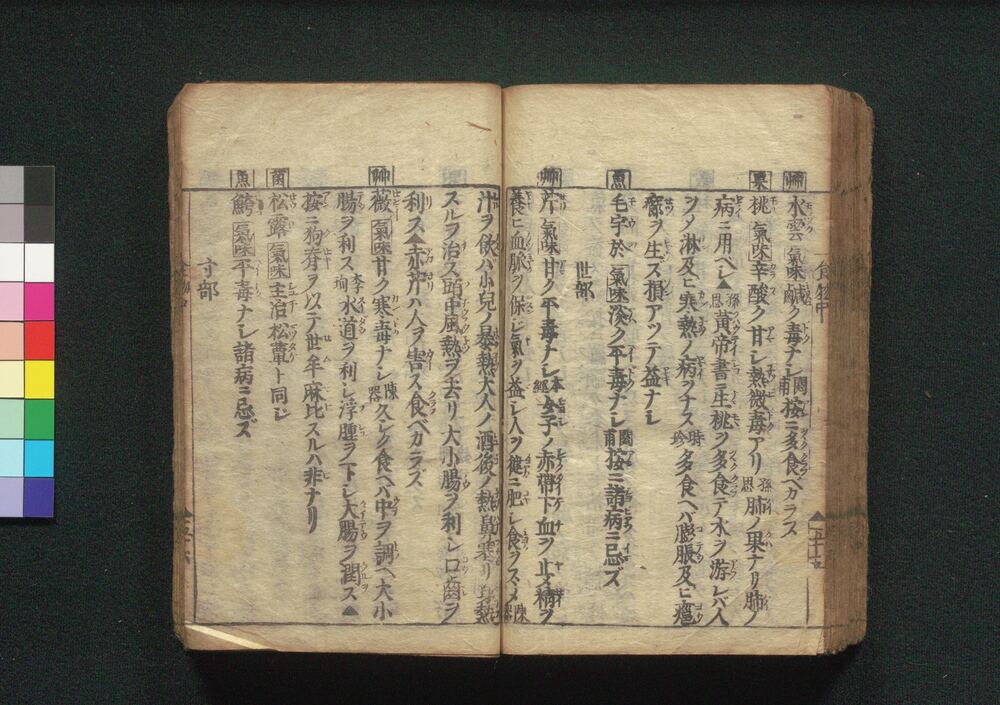 艸 水雲 氣味鹹ク毒ナシ 閩甫 按ニ多食ベカラス
果 桃 氣味辛酸ク甘シ熱微毒アリ 孫思 肺ノ果ナリ肺ノ
病ニ用ベシ▲ 孫思 黄帝書ニ生桃ヲ多食テ水ヲ游レバ人
ヲメ淋及ヒ寒熱ノ病ヲナス 時珍 多食ヘバ膨脹及ヒ癰
癤ヲ生ス損アツテ益ナシ
魚 毛宇於 氣味淡ク平毒ナシ 閩甫 按ニ諸病ニ忌ズ
世部
艸 芹 氣味甘ク平毒ナシ 本經 女子ノ赤帶下血ヲ止メ精ヲ
養ヒ血脈ヲ保シ氣ヲ益シ人ヲ健ニ肥シ食ヲスヽメ 陳器
汁ヲ飲バ小兒ノ暴熱大人ノ酒後ノ熱鼻塞リ身熱
スルヲ治ス頭中風熱ヲ去リ大小腸ヲ利シ口齒ヲ
利ス▲赤芹ハ人ヲ害ス食ベカラズ
艸 薇 氣味甘ク寒毒ナシ 陳器 久シク食ヘバ中ヲ調ヘ大小
腸ヲ利ス 李珣 水道ヲ利シ浮腫ヲ下シ大腸ヲ潤ス▲
按ニ狗脊ヲ以テ世牟麻比スルハ非ナリ
菌 松露 氣味主治松蕈ト同シ
寸部
魚 鮬 氣味平毒ナシ諸病ニ忌ズ